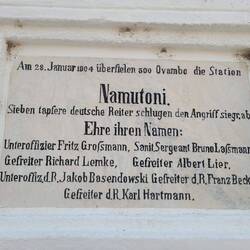 Am 28. Januar 1904 überfielen 500 Ovambo die Station
Namutoni.
Sieben tapfere deutsche Reiter schlugen den Angriff siegr. ab
Ehre ihren Namen:
Unteroffizier Fritz Großmann, Sanit. Sergeant Bruno Laßmann
Gefreiter Richard Lemke, Gefreiter Albert Lier,
Unteroffiz. d. R. Jakob Basendowski Gefreiter d. R. Franz Beck
Gefreiter d. R. Karl Hartmann.